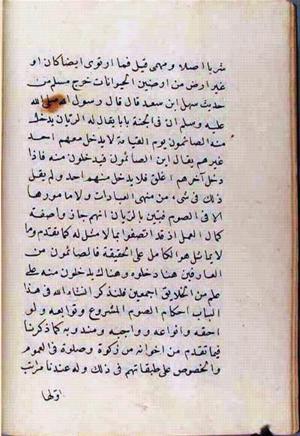 شربا اصلا ومهمى قيل فيما ارتوى ايضا كان او
غير ارض من ارضين الحيوانات خرج مسلم من
حديث سهل ابن سعد قال قال رسول الله صلى الله
عليه وسلم ان فى الجنة بابا يقال له الريان يدخل
منه الصائمون يوم القيامة لا يدخل معهم احد
غيرهم يقال اين الصائمون فيدخلون منه فاذا
دخل آخرهم اغلق فلا يدخل منهم احد ولم يقل
ذلك فى شىء من منهى العبادات ولا مأمورها
الا فى الصوم فبين بالريان انهم حازوا صفة
كمال العمل اذ قد اتصفوا بما لا مثل له كما تقدم وما
لا يماثل هو الكامل على الحقيقة فالصائمون من
العارفين هنا دخلوه وهناك يدخلون منه على
علم من الخلايق اجمعين فلنذكر ان شاء الله فى هذا
الباب احكام الصوم المشروع وتوابعه ولو
احقه وانواعه وواجبه ومندوبه كما ذكرنا
فيما تقدم من اخوانه من زكوة وصلوة فى العموم
والخصوص على طبقاتهم فى ذلك وله عندنا مراتب
اولها